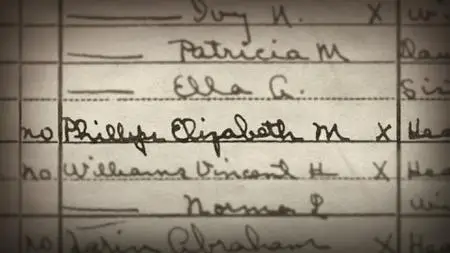 Ivy N. X Wi
Patricia M Dau
Ella G. Sis
no Phillips Elizabeth M X Hea
no Williams Vincent H X Hea
Norma Wi
no Abraham X Hea